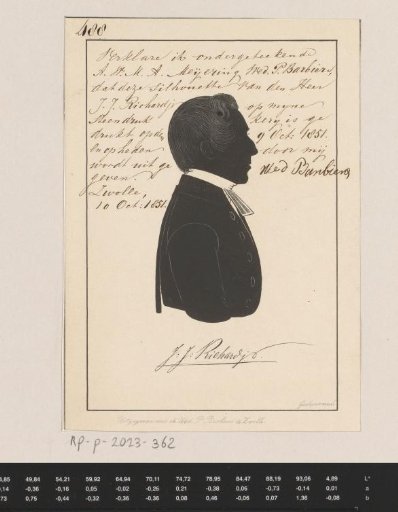 400
Verklare ik ondergeteekende
A. W. M. A. Meijering Wed. P. Barbiers,
dat deze Silhouette van den Heer
J. J. Richard op myne
Steendruk kery is ge
drukt op den 9 Oct. 1851.
en op heden door mij
wordt uit ge Wed Barbiers
geven.
Zwolle,
10 Oct: 1851.
J. J. Richard
RP-P-2023-362
49,84 54,21 59,92 64,94 70,11 74,72 78,95 84,47 88,19 93,06 4,89 L*
-0,36 -0,16 0,05 -0,02 -0,26 0,21 -0,38 0,05 -0,73 -0,14 0,01 a
0,75 -0,44 -0,32 -0,36 -0,36 0,08 0,46 -0,06 0,07 1,36 -0,08 b